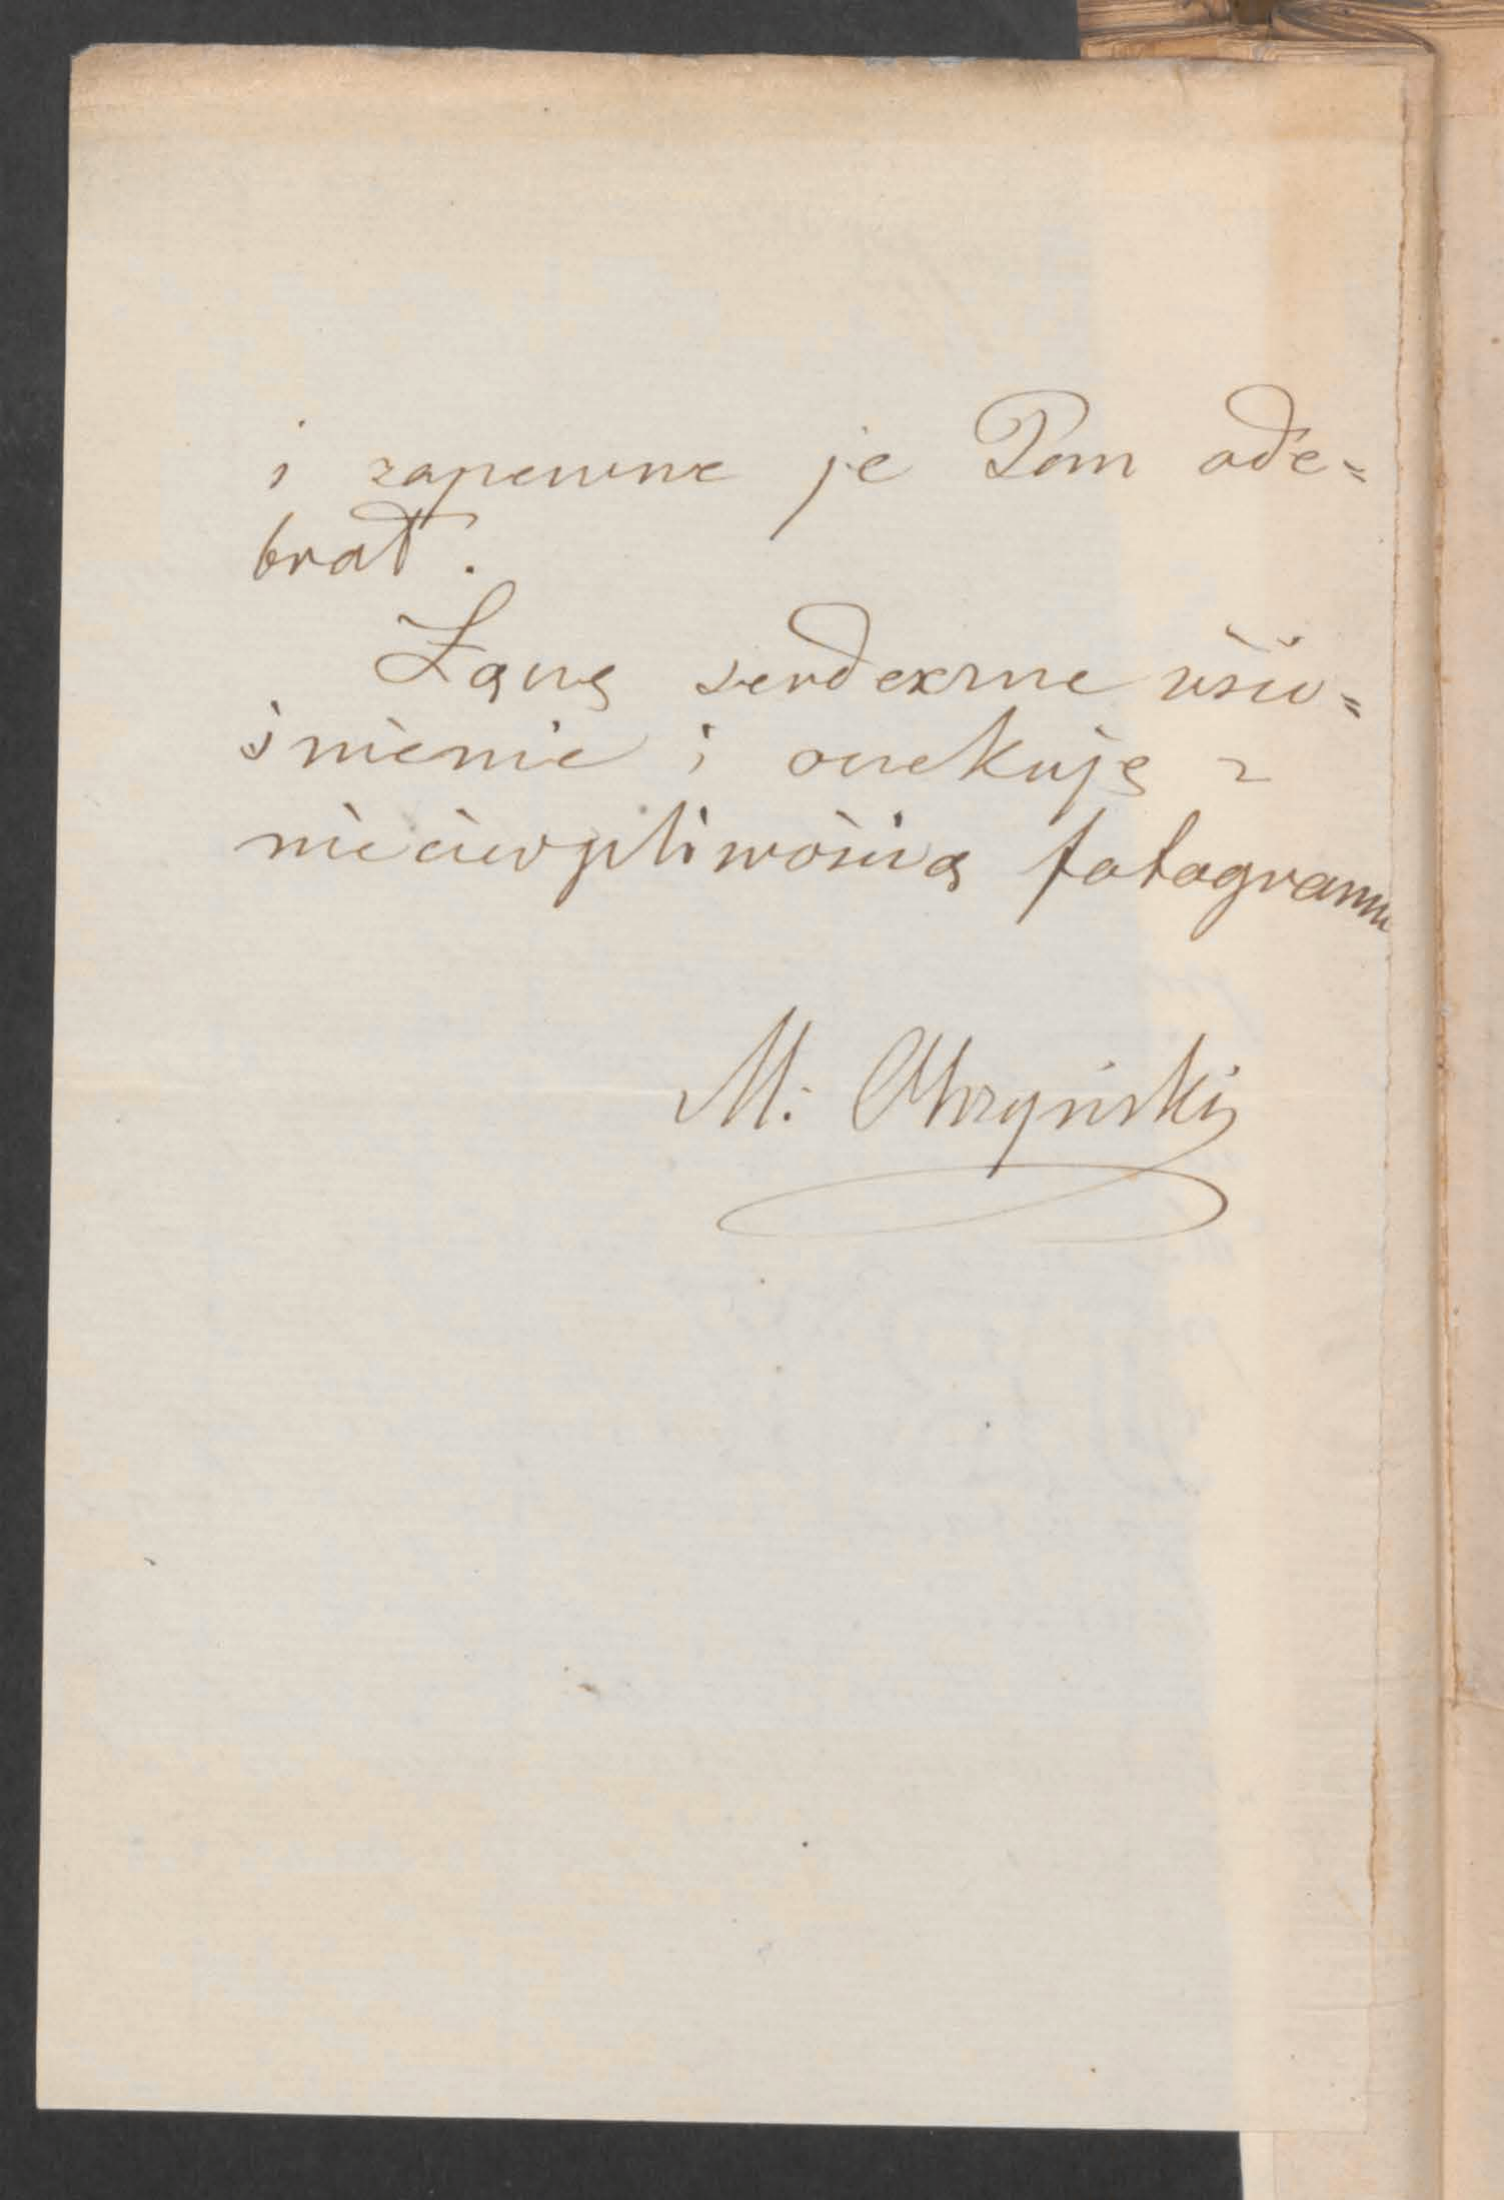 i zapewne je Pan ode=
brał.
Łączę serdeczne uści=
śnienie i oczekuję z
niecierpliwością fotogramu
M.